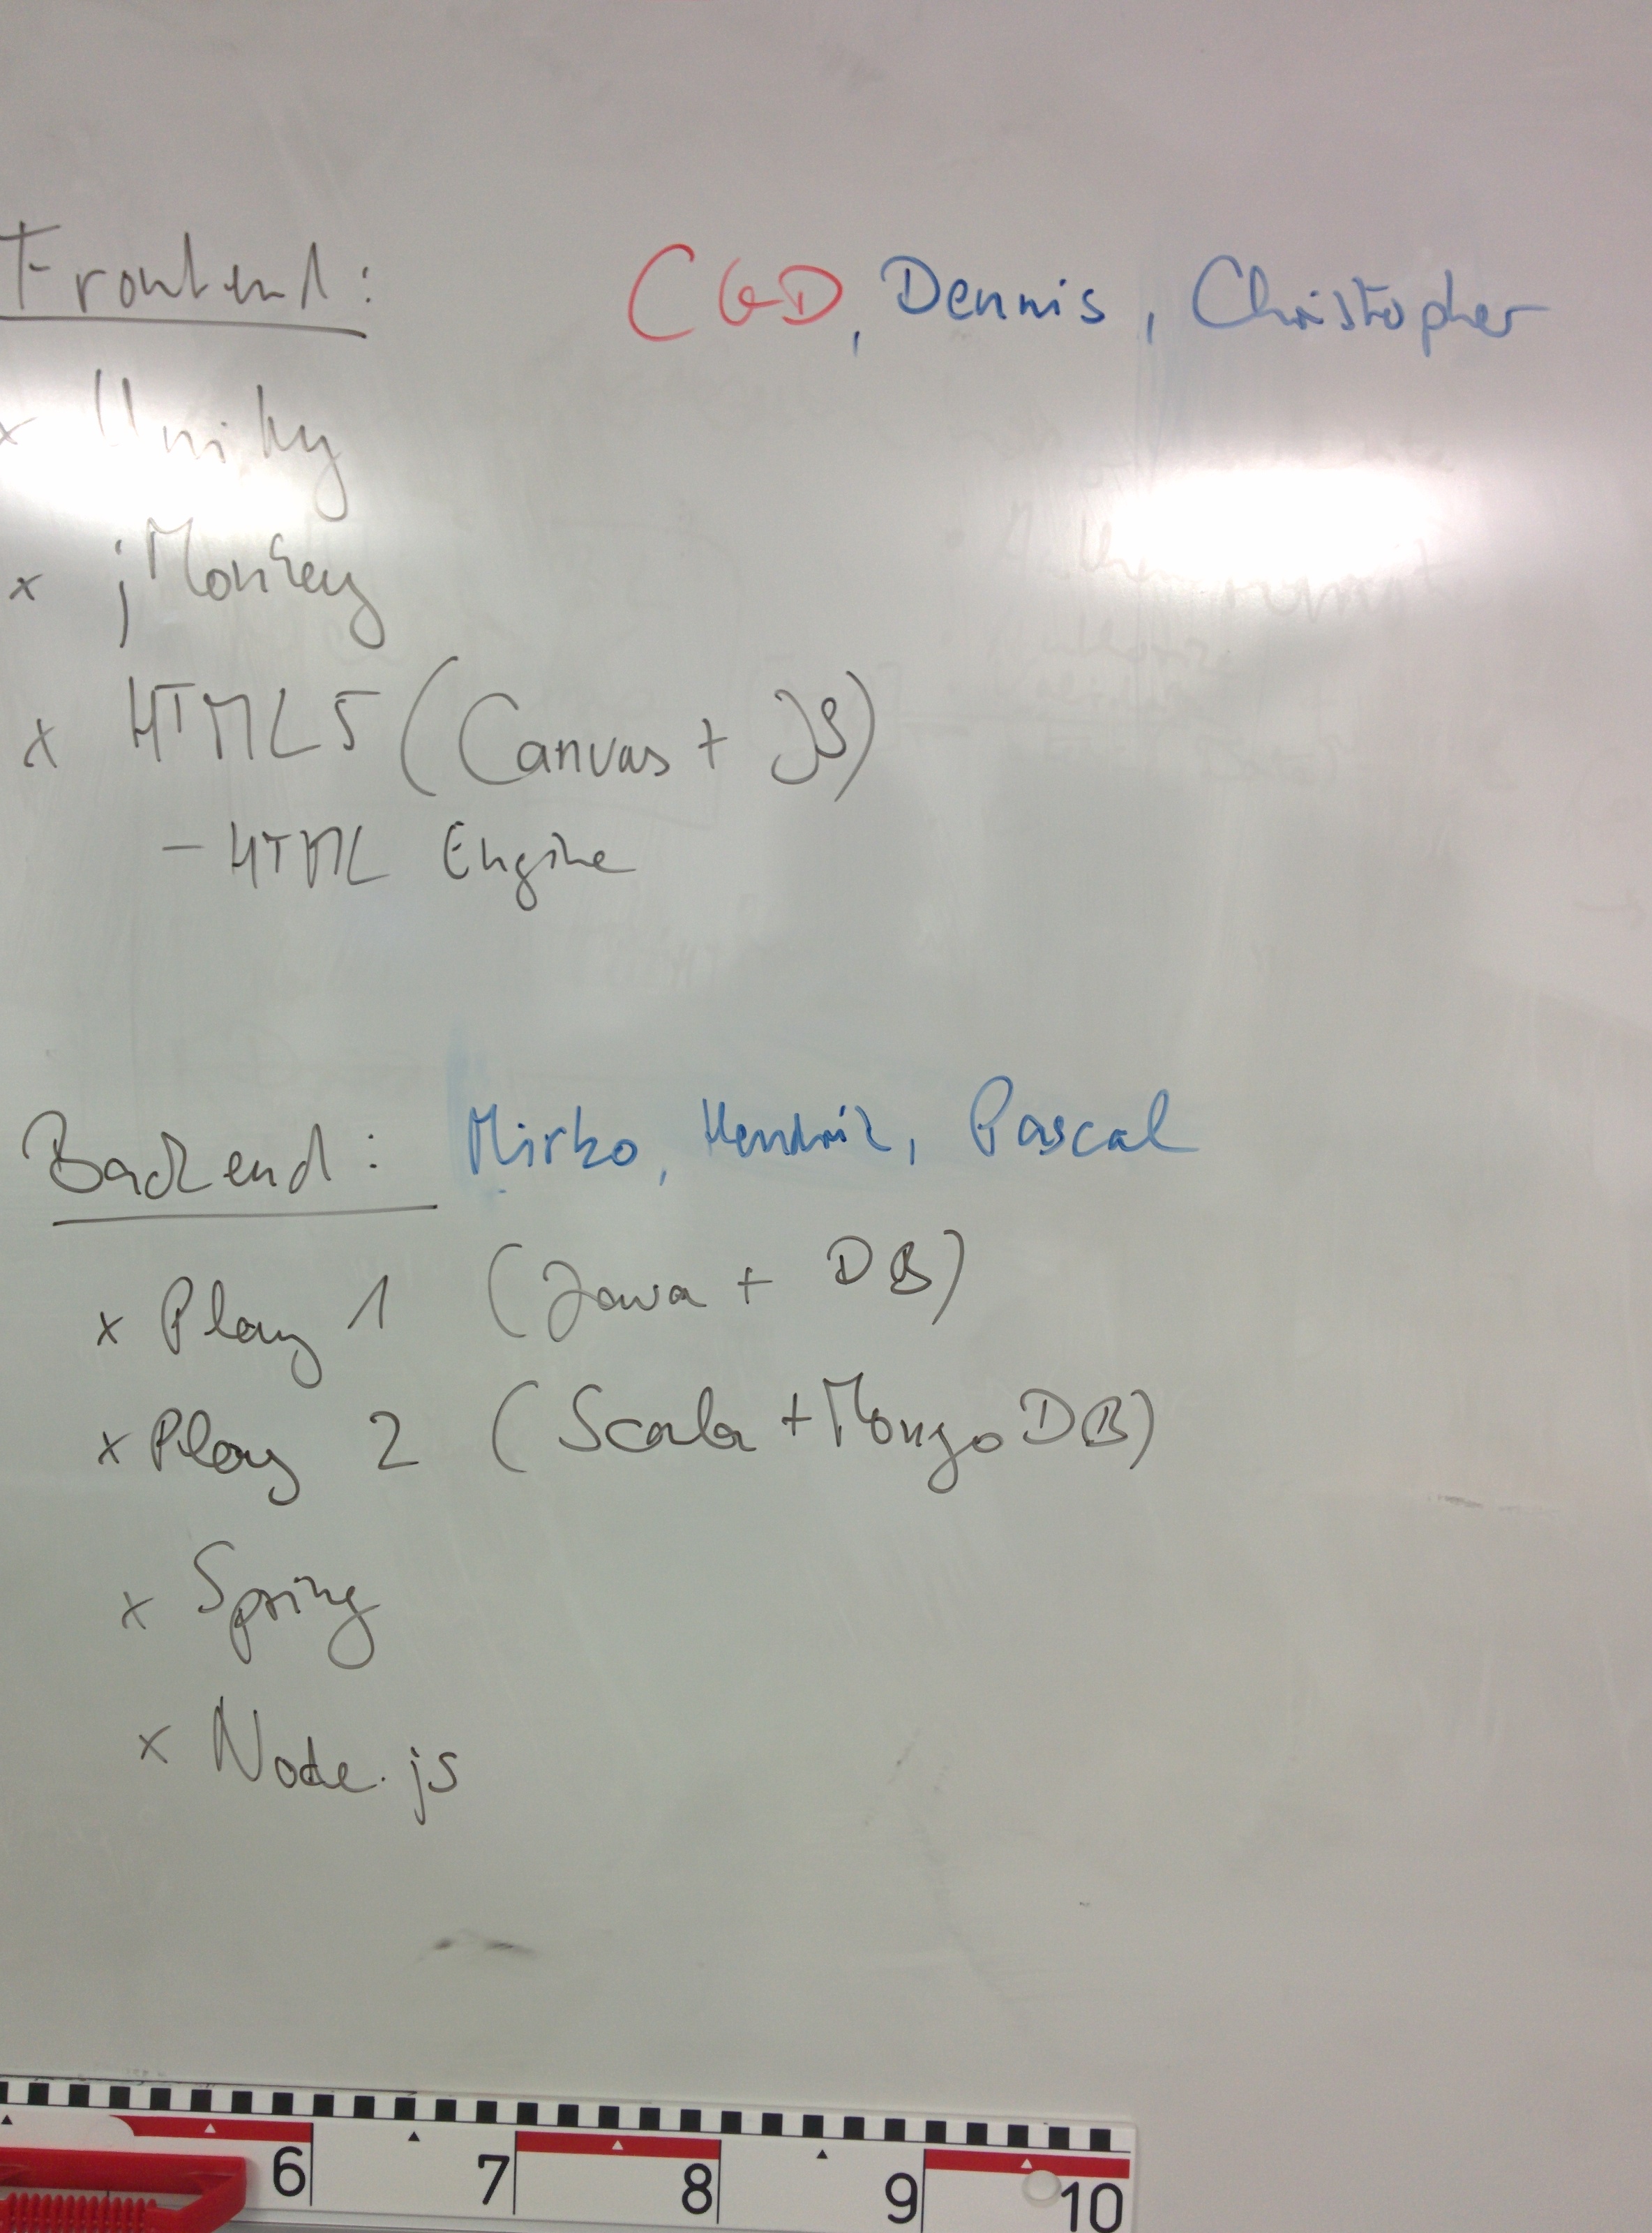 Frontend: CGD, Dennis, Christopher
x Unity
x jMonkey
x HTML5 (Canvas + JS)
- HTML Engine
Backend: Mirko, Hendrik, Pascal
x Play 1 (Java + DB)
x Play 2 (Scala + MongoDB)
x Spring
x Node.js
6 7 8 9 10